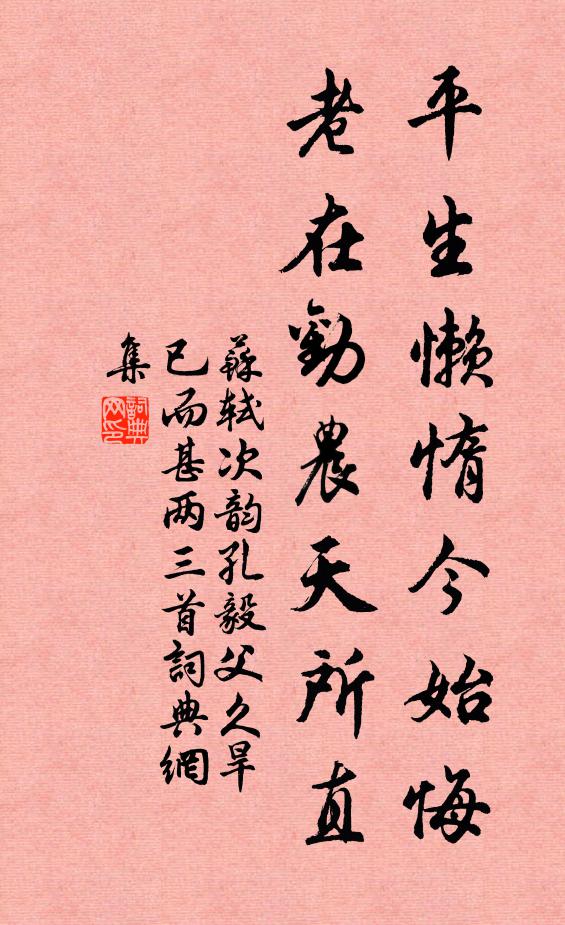 平生懒惰今始悔
老在勸農天所直
蘇軾次韵孔毅父久旱
已而甚两三首詞典網
集
詞典网印